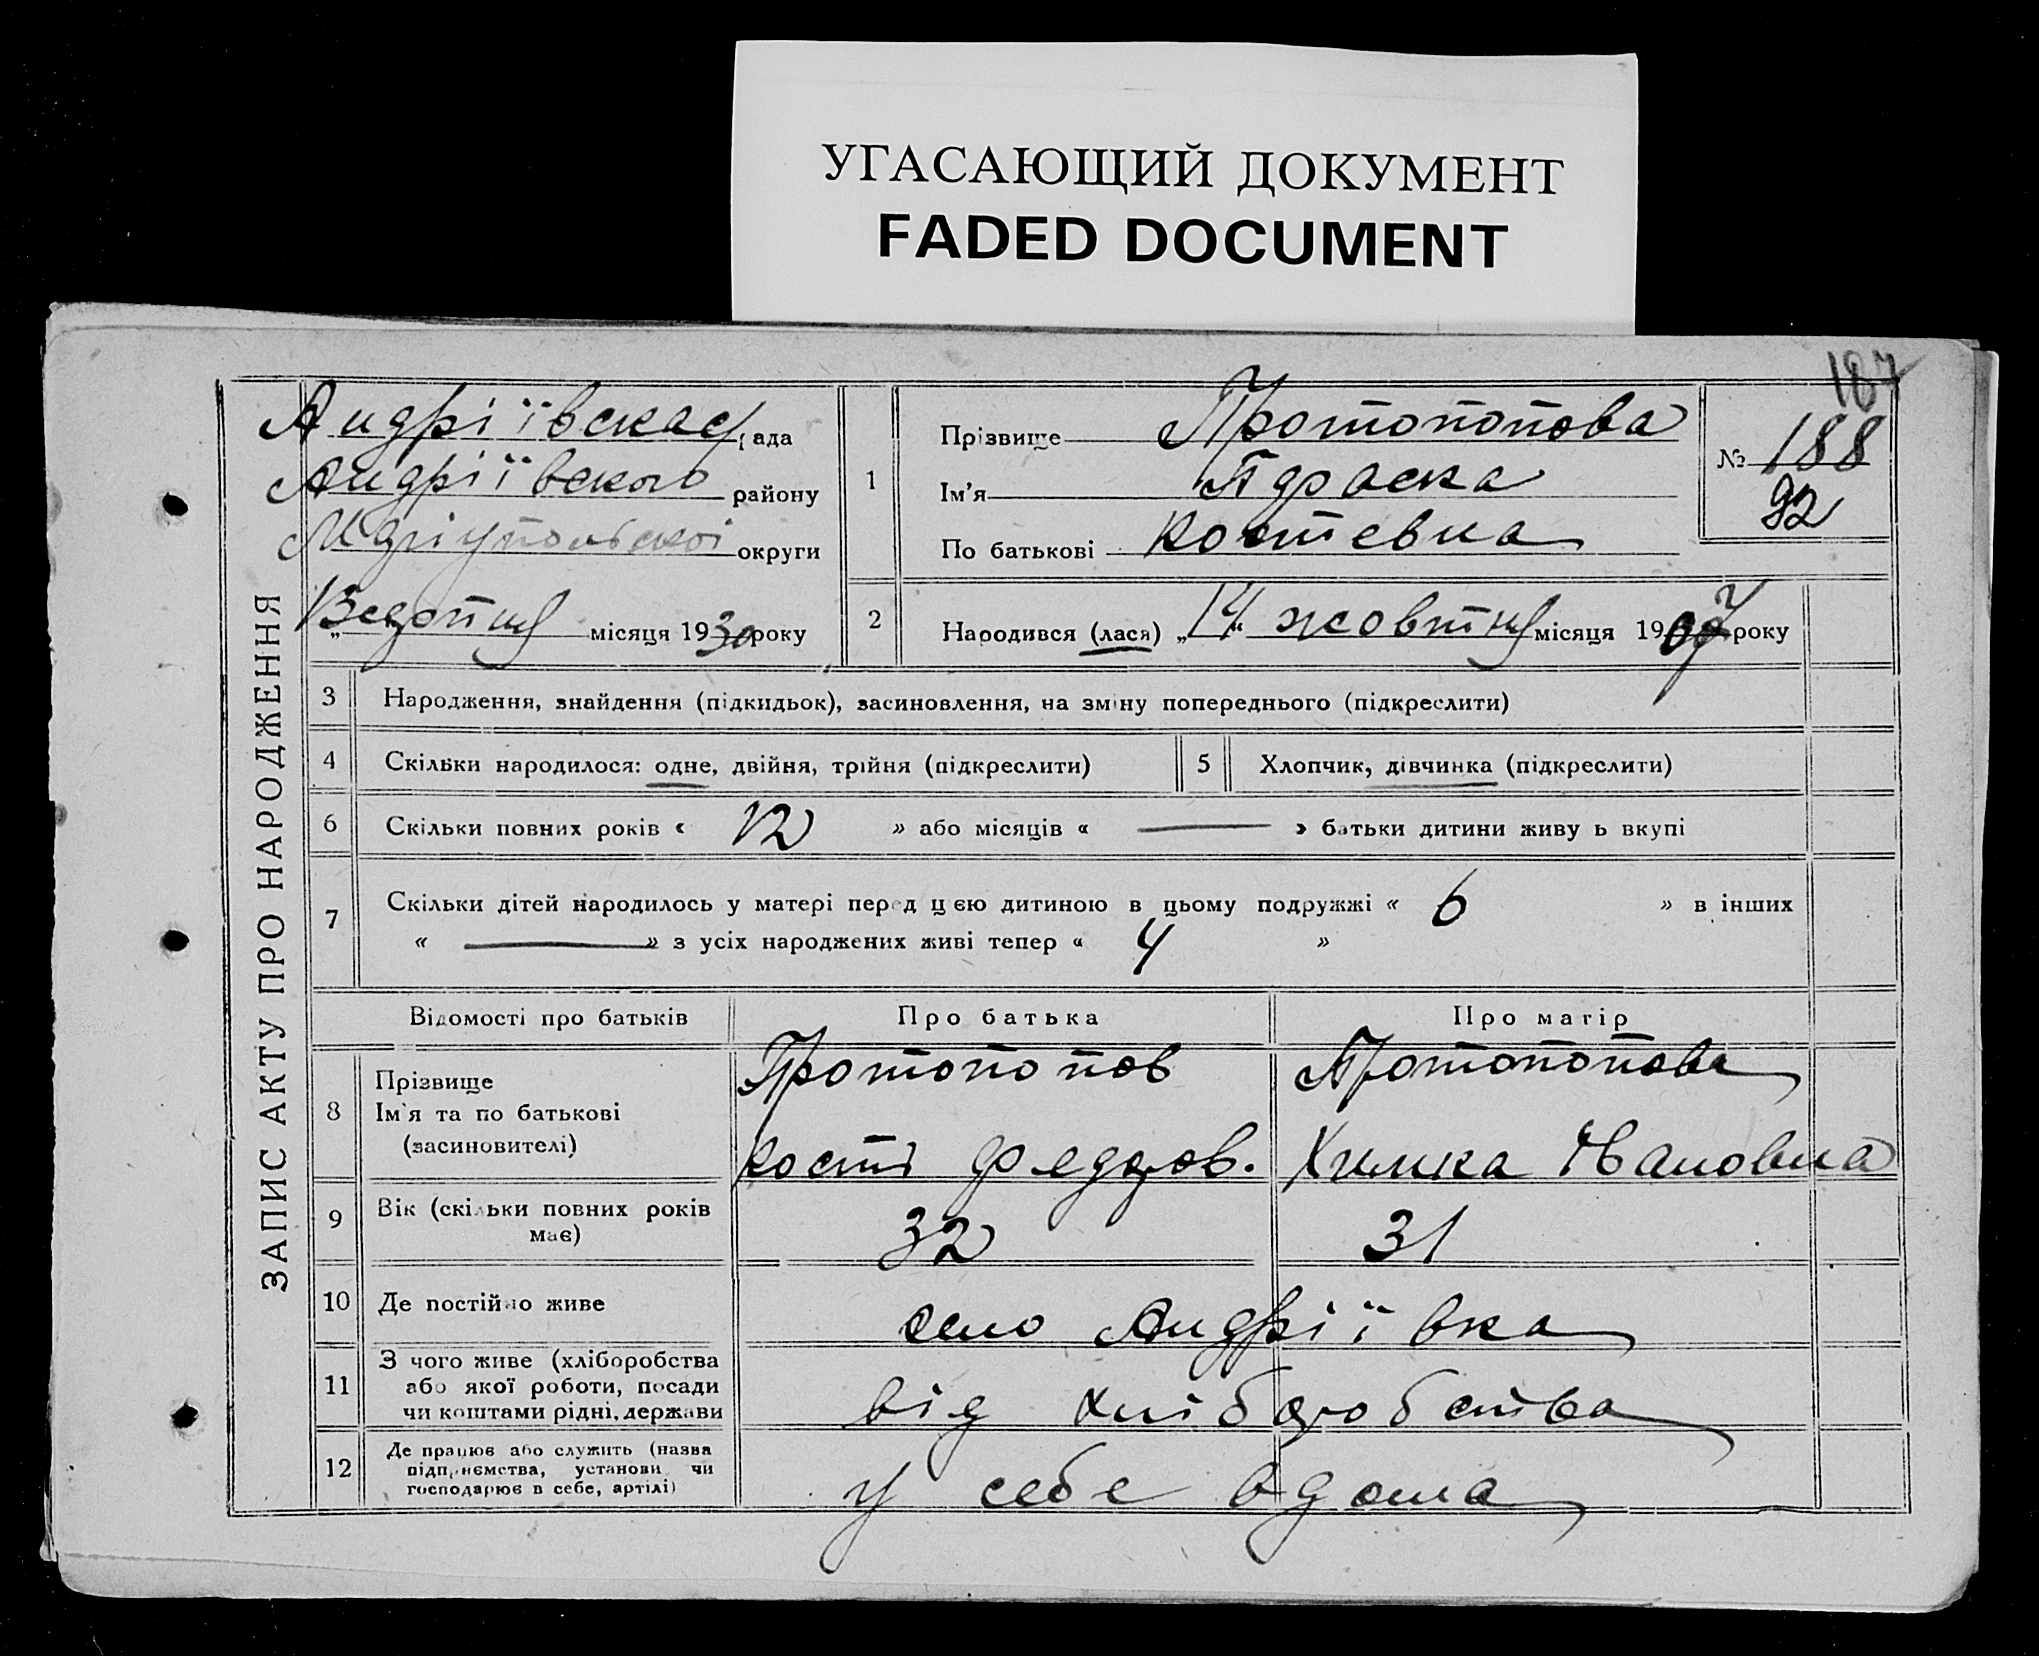 УГАСАЮЩИЙ ДОКУМЕНТ
FADED DOCUMENT
187
ЗАПИС АКТУ ПРО НАРОДЖЕННЯ
Андріївская рада
Андріївського району
Маріупольскоі округи
місяця 1930 року
1
Прізвище Протопопова
Ім'я Параска
По батькові Костевна
№ 188
92
2 Народився (лася) „14“ жовтня місяця 1907 року
3 Народження, знайдення (підкидьок), засиновлення, на зміну попереднього (підкреслити)
4 Скільки народилося: одне, двійня, трійня (підкреслити)
5 Хлопчик, дівчинка (підкреслити)
6 Скільки повних років « 12 » або місяців « — » батьки дитини живуть вкупі
7 Скільки дітей народилось у матері перед цією дитиною в цьому подружжі « 6 » в інших
« — » з усіх народжених живі тепер « 4 »
Відомості про батьків Про батька Про матір
8 Прізвище
Ім'я та по батькові
(засиновителі)
Протопопов
Кості Федоров.
Протопопова
Химка Івановна
9 Вік (скільки повних років
має)
32 31
10 Де постійно живе село Андріївка
11 З чого живе (хліборобства
або якої роботи, посади
чи коштами рідні, держави
від хліборобства
12 Де працює або служить (назва
підприємства, установи чи
господарює в себе, артілі)
у себе вдома